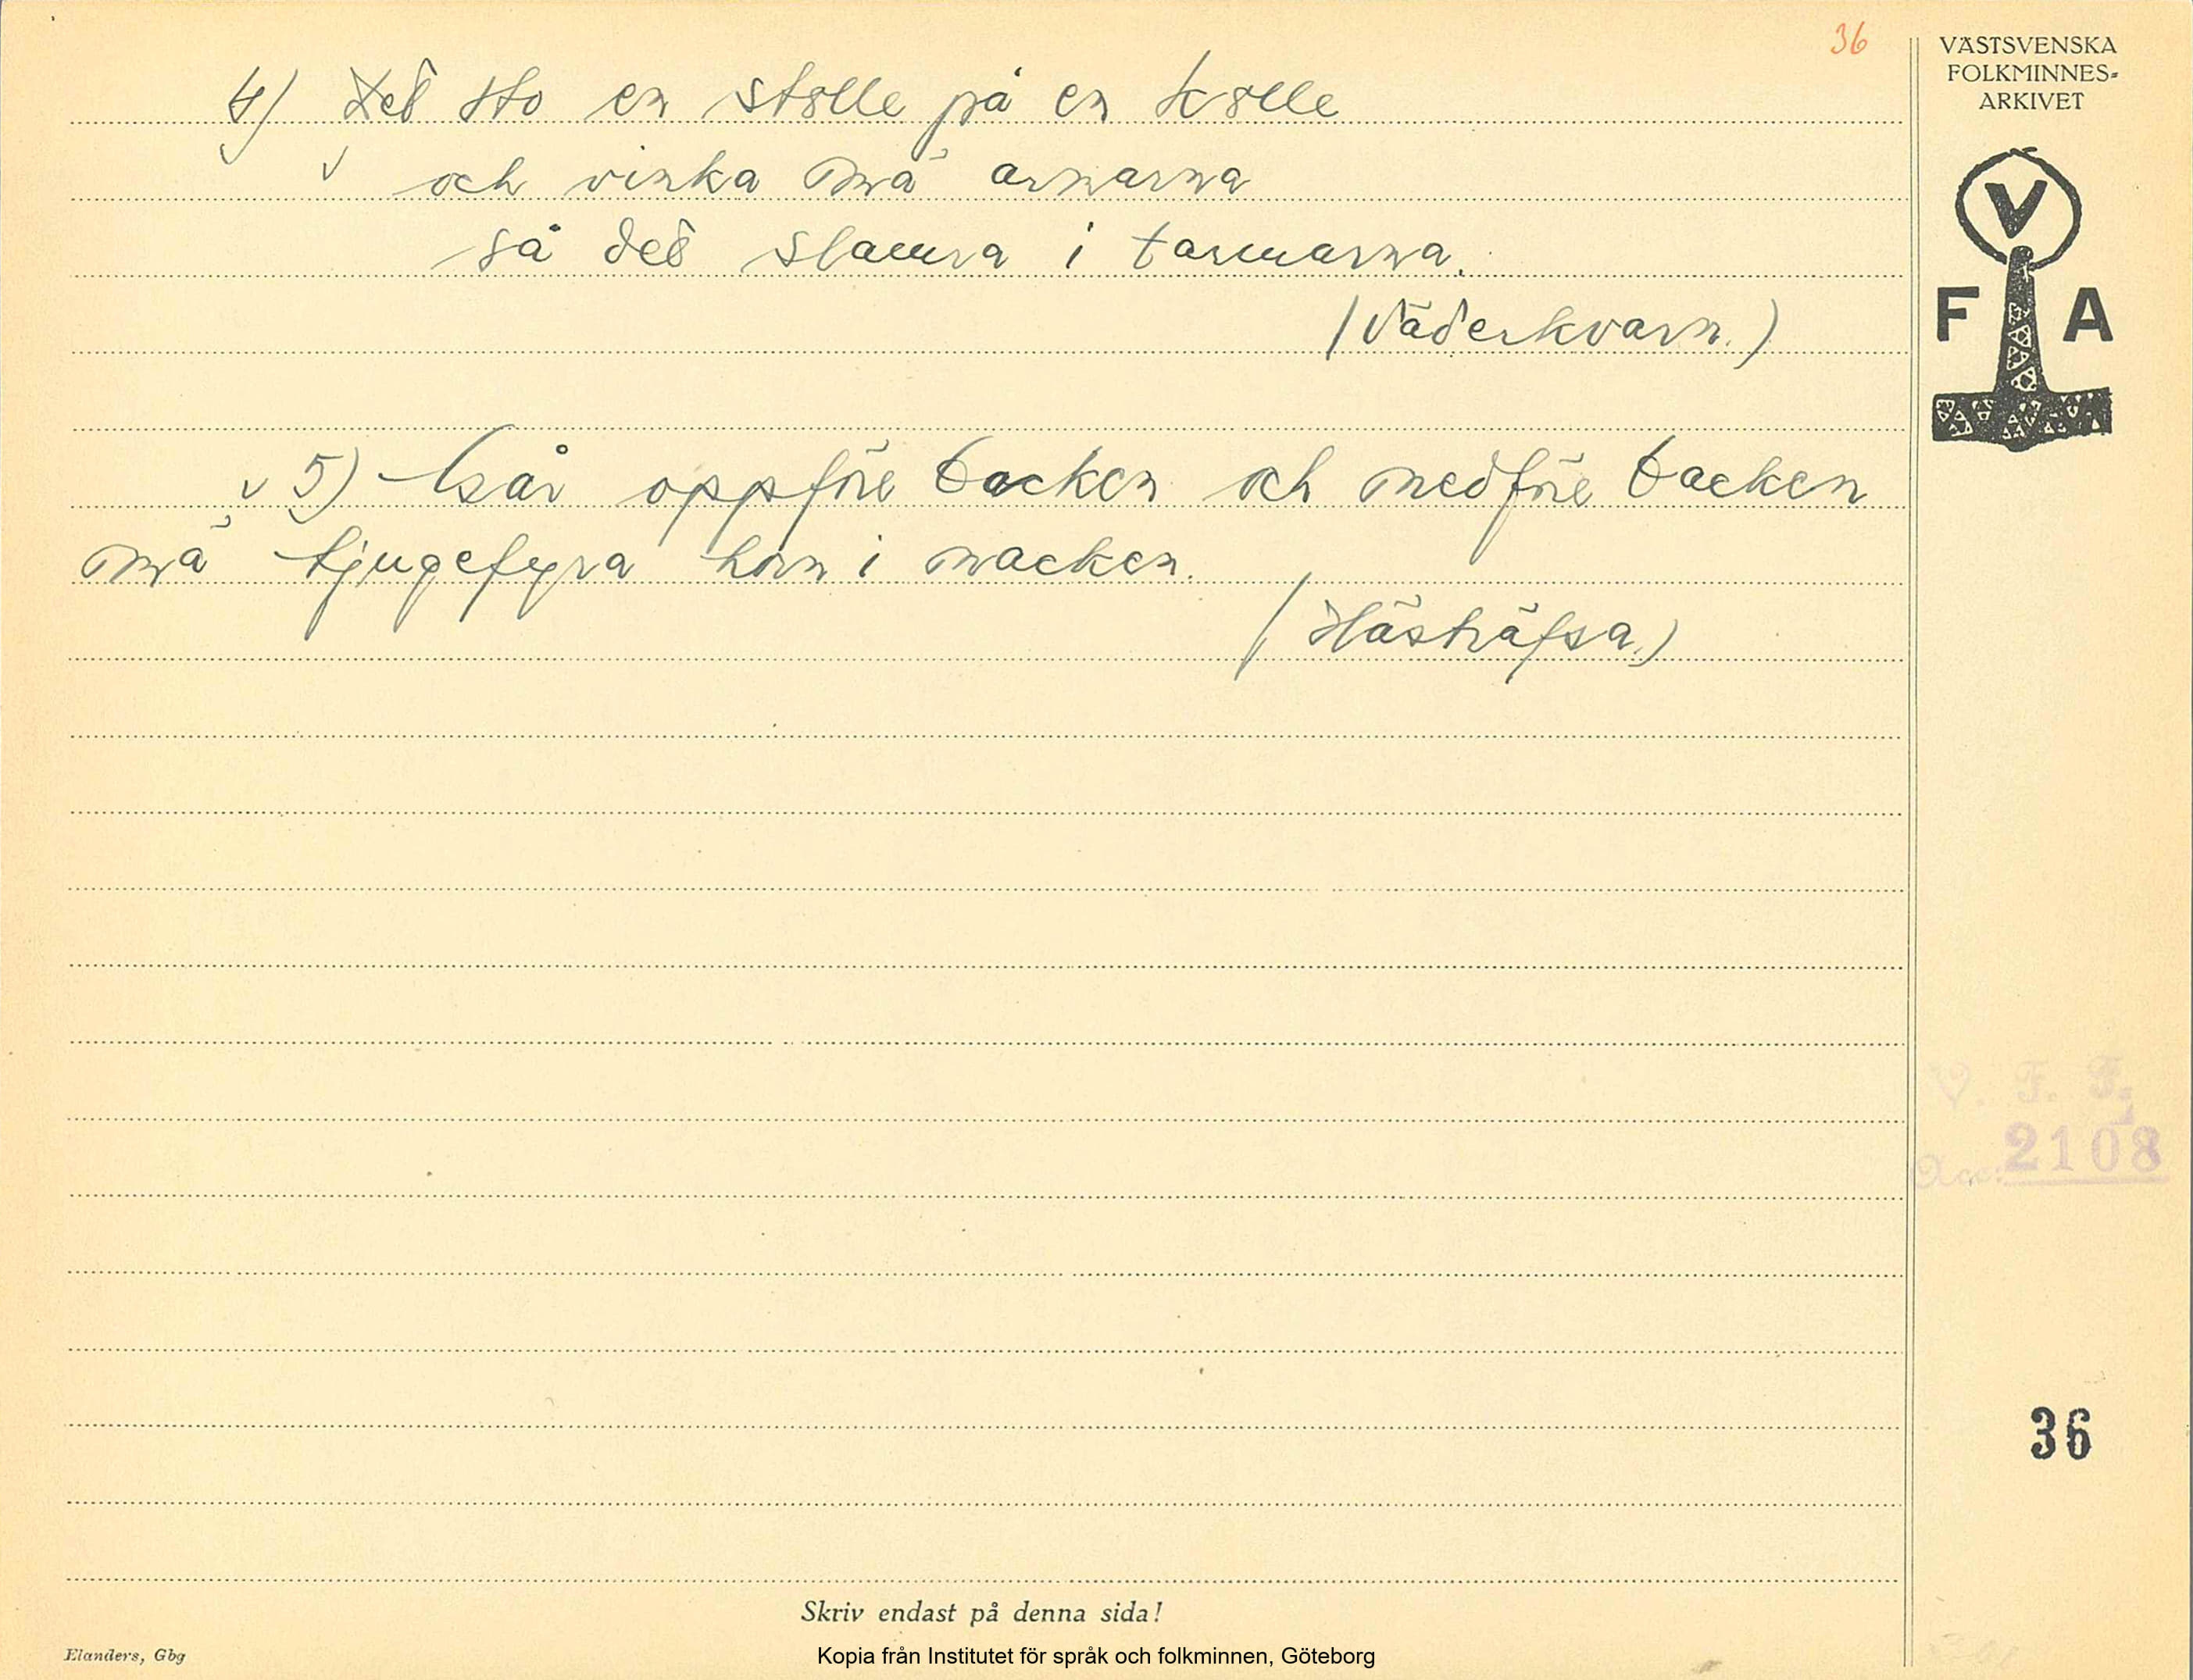 36
VÄSTSVENSKA
FOLKMINNES-
ARKIVET
V
F A
4) Det sto en stolle på en kolle
och vinka mä armarna
så det slamra i tarmarna.
(Väderkvarn.)
v 5) Går oppföre backen och nedföre backen
mä tjugefyra horn i nacken.
(Hästräfsa.)
V. F. F.
Acc. 2108
36
Skriv endast på denna sida!
Elanders, Gbg
Kopia från Institutet för språk och folkminnen, Göteborg